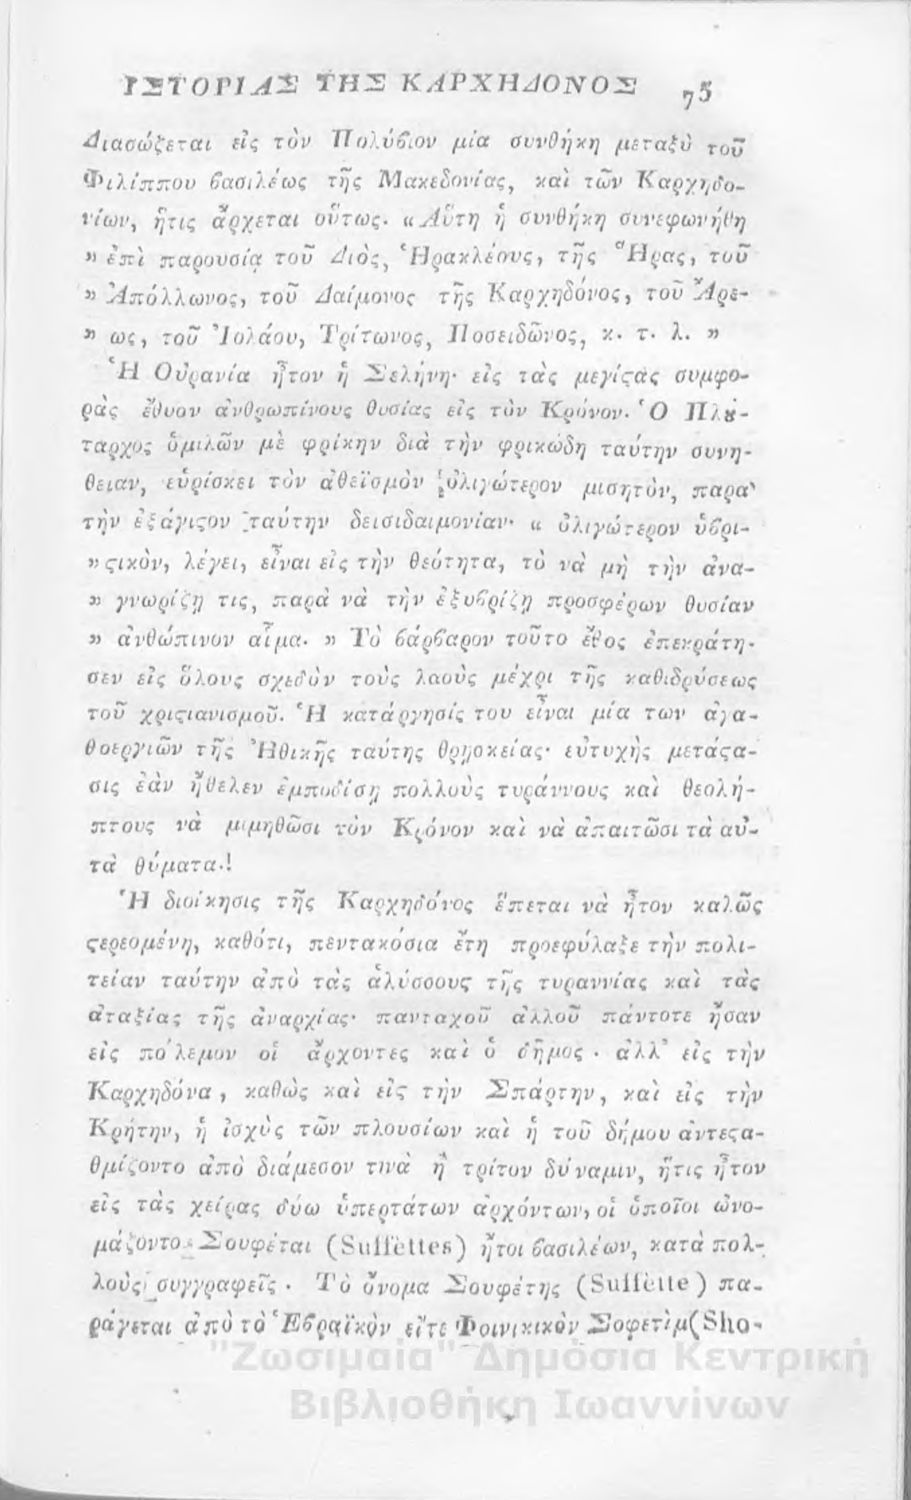 ΙΣΤΟΡΙΑΣ ΤΗΣ ΚΑΡΧΗΔΟΝΟΣ 75
Διασώζεται εἰς τὸν Πολύβιον μία συνθήκη μεταξὺ τοῦ
Φιλίππου βασιλέως τῆς Μακεδονίας, καὶ τῶν Καρχηδο-
νίων, ἥτις ἄρχεται οὕτως. « Αὕτη ἡ συνθήκη συνεφωνήθη
» ἐπὶ παρουσίᾳ τοῦ Διὸς, Ἡρακλέους, τῆς Ἥρας, τοῦ
» Ἀπόλλωνος, τοῦ Δαίμονος τῆς Καρχηδόνος, τοῦ Ἄρε-
» ως, τοῦ Ἰολάου, Τρίτωνος, Ποσειδῶνος, κ. τ. λ. »
Ἡ Οὐρανία ἦτον ἡ Σελήνη· εἰς τὰς μεγίϛας συμφο-
ρὰς ἔθυον ἀνθρωπίνους θυσίας εἰς τὸν Κρόνον. Ὁ Πλȣ-
ταρχος ὁμιλῶν μὲ φρίκην διὰ τὴν φρικώδη ταύτην συνή-
θειαν, εὑρίσκει τὸν ἀθεϊσμὸν ὀλιγώτερον μισητὸν, παρα'
τὴν ἐξάγιϛον ταύτην δεισιδαιμονίαν· « ὀλιγώτερον ὑβρι-
» ϛικὸν, λέγει, εἶναι εἰς τὴν θεότητα, τὸ νὰ μὴ τὴν ἀνα-
» γνωρίζῃ τις, παρὰ νὰ τὴν ἐξυβρίζῃ προσφέρων θυσίαν
» ἀνθώπινον αἷμα. » Τὸ βάρβαρον τοῦτο ἔθος ἐπεκράτη-
σεν εἰς ὅλους σχεδὸν τοὺς λαοὺς μέχρι τῆς καθιδρύσεως
τοῦ χριϛιανισμοῦ. Ἡ κατάργησίς του εἶναι μία των ἀγα-
θοεργιῶν τῆς Ἠθικῆς ταύτης θρησκείας· εὐτυχὴς μετάϛα-
σις ἐὰν ἤθελεν ἐμποδίσῃ πολλοὺς τυράννους καὶ θεολή-
πτους νὰ μιμηθῶσι τὸν Κρόνον καὶ νὰ ἀπαιτῶσι τὰ αὐ-
τὰ θύματα.!
Ἡ διοίκησις τῆς Καρχηδόνος ἕπεται νὰ ἦτον καλῶς
ϛερεομένη, καθότι, πεντακόσια ἔτη προεφύλαξε τὴν πολι-
τείαν ταύτην ἀπὸ τὰς ἁλύσσους τῆς τυραννίας καὶ τὰς
ἀταξίας τῆς ἀναρχίας· πανταχοῦ ἀλλοῦ πάντοτε ἦσαν
εἰς πόλεμον οἱ ἄρχοντες καὶ ὁ δῆμος · ἀλλ' εἰς τὴν
Καρχηδόνα , καθὼς καὶ εἰς τὴν Σπάρτην, καὶ εἰς τὴν
Κρήτην, ἡ ἰσχὺς τῶν πλουσίων καὶ ἡ τοῦ δήμου ἀντεϛα-
θμίζοντο ἀπὸ διάμεσον τινὰ ἢ τρίτον δύναμιν, ἥτις ἦτον
εἰς τὰς χεῖρας δύω ὑπερτάτων ἀρχόντων, οἱ ὁποῖοι ὠνο-
μάζοντο Σουφέται (Suffèttes) ἤτοι βασιλέων, κατὰ πολ-
λοὺς συγγραφεῖς · Τὸ ὄνομα Σουφέτης (Suffètte) πα-
ράγεται ἀπὸ τὸ Ἑβραϊκὸν εἴτε Φοινικικὸν Σοφετὶμ (Sho-
"Ζωσιμαία" Δημόσια Κεντρική
Βιβλιοθήκη Ιωαννίνων